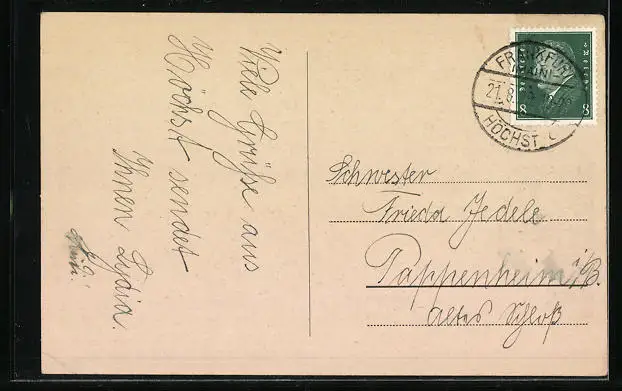 Viele Grüße aus
Höchst sendet
Ihnen Lydia.
FRANKFURT
(MAIN)
21.8.
HÖCHST
8 8
Schwester
Frieda Jedele
Pappenheim i/B.
altes Schloß